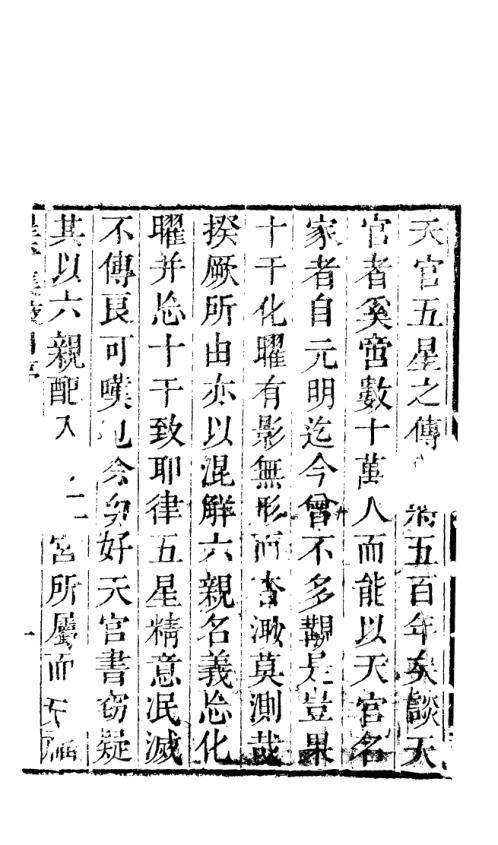 天官五星之傳五百年矣談天
官者奚啻數十萬人而能以天官名
家者自元明迄今曾不多觀是豈果
十干化曜有影無形而杳渺莫測哉
揆厥所由亦以混解六親名義忩化
曜并忩十干致耶律五星精意泯滅
不傳良可嘆也余幼好天官書窃疑
其以六親配入十二宮所屬而